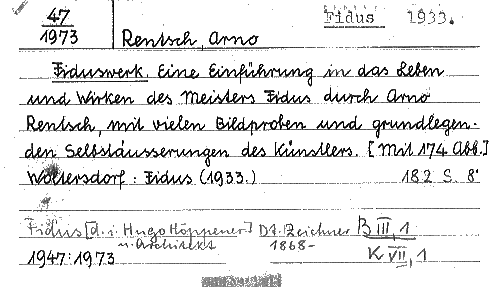 47 Fidus 1933.
1973 Rentsch, Arno
Fiduswerk. Eine Einführung in das Leben
und Wirken des Meisters Fidus durch Arno
Rentsch, mit vielen Bildproben und grundlegen-
den Selbstäusserungen des Künstlers. [Mit 174 Abb.]
Woltersdorf: Fidus (1933.) 182 S. 8°
Fidus [d. i. Hugo Höppener] Dt. Zeichner B III, 1
u. Architekt 1868- K VII, 1
1947:1973